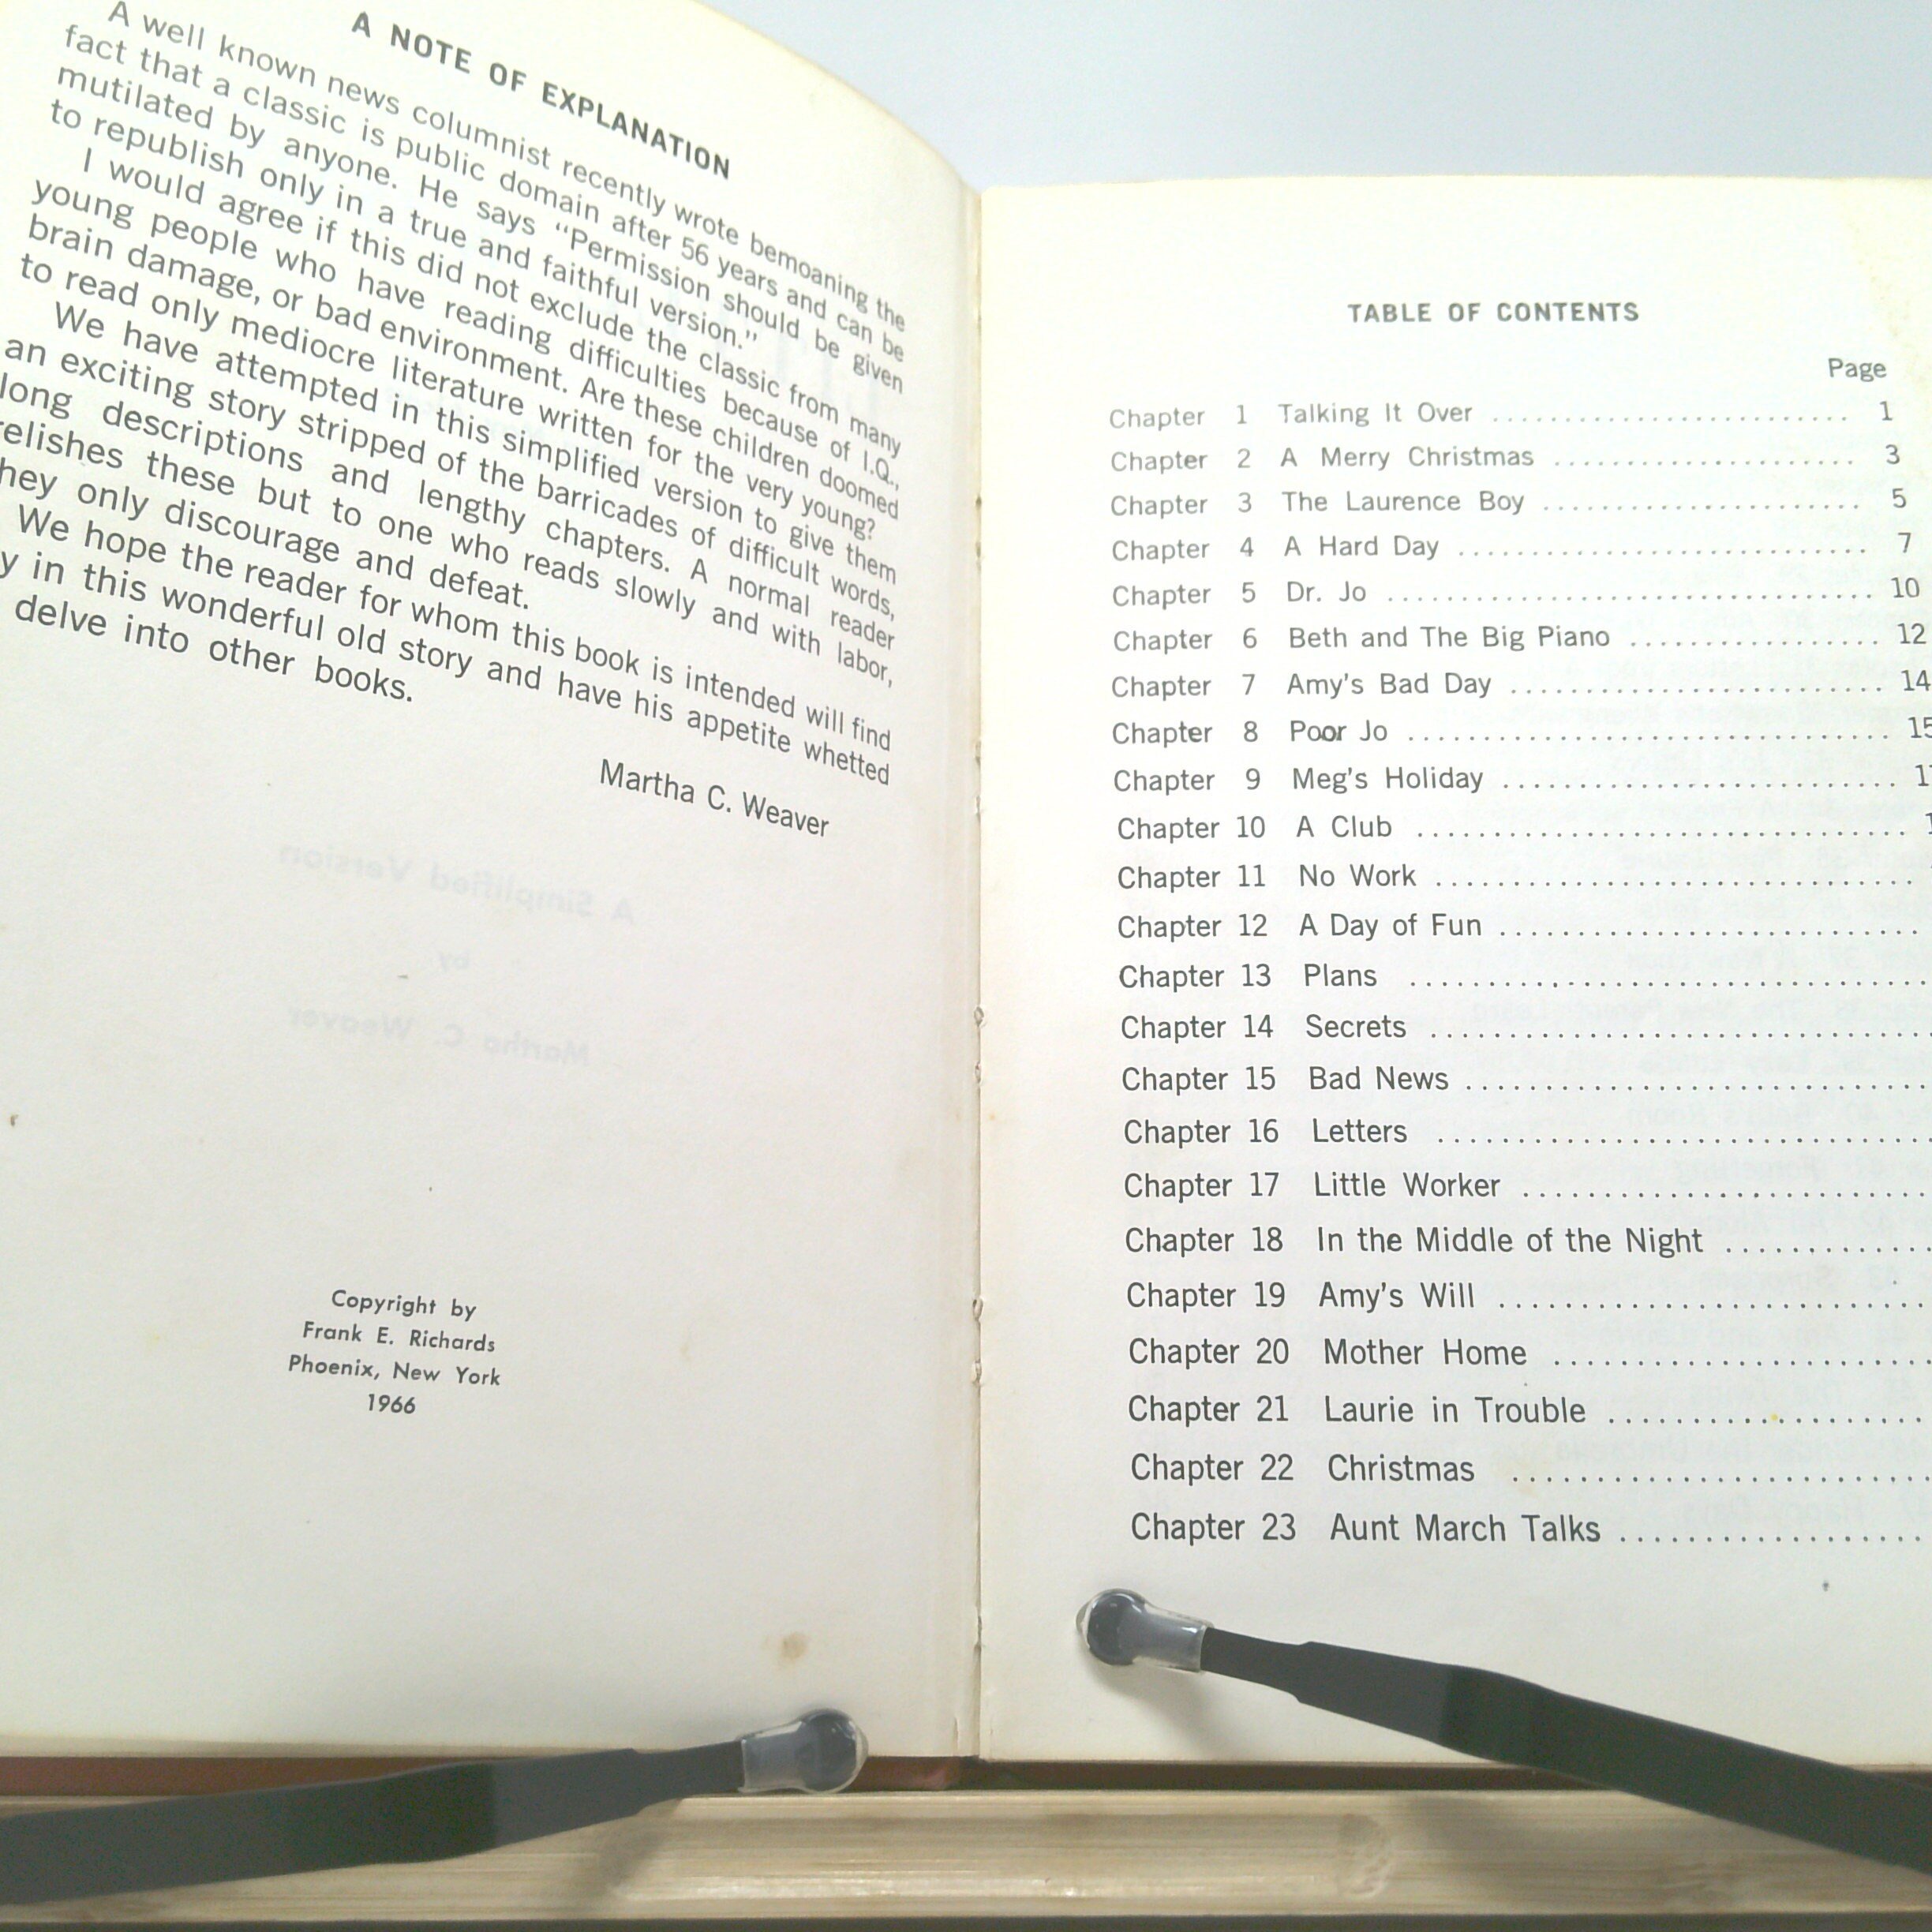 A NOTE OF EXPLANATION
A well known news columnist recently wrote bemoaning the
fact that a classic is public domain after 56 years and can be
mutilated by anyone. He says "Permission should be given
to republish only in a true and faithful version."
I would agree if this did not exclude the classic from many
young people who have reading difficulties because of I.Q.,
brain damage, or bad environment. Are these children doomed
to read only mediocre literature written for the very young?
We have attempted in this simplified version to give them
an exciting story stripped of the barricades of difficult words,
long descriptions and lengthy chapters. A normal reader
relishes these but to one who reads slowly and with labor,
they only discourage and defeat.
We hope the reader for whom this book is intended will find
y in this wonderful old story and have his appetite whetted
delve into other books.
Martha C. Weaver
A Simplified Version
by
Martha C. Weaver
Copyright by
Frank E. Richards
Phoenix, New York
1966
TABLE OF CONTENTS
Page
Chapter 1 Talking It Over ........................ 1
Chapter 2 A Merry Christmas ..................... 3
Chapter 3 The Laurence Boy ...................... 5
Chapter 4 A Hard Day ............................ 7
Chapter 5 Dr. Jo ................................. 10
Chapter 6 Beth and The Big Piano ................. 12
Chapter 7 Amy's Bad Day ......................... 14
Chapter 8 Poor Jo ................................ 15
Chapter 9 Meg's Holiday ..........................
Chapter 10 A Club ................................
Chapter 11 No Work ...............................
Chapter 12 A Day of Fun ..........................
Chapter 13 Plans .................................
Chapter 14 Secrets ...............................
Chapter 15 Bad News ..............................
Chapter 16 Letters ...............................
Chapter 17 Little Worker .........................
Chapter 18 In the Middle of the Night ............
Chapter 19 Amy's Will ............................
Chapter 20 Mother Home ...........................
Chapter 21 Laurie in Trouble .....................
Chapter 22 Christmas .............................
Chapter 23 Aunt March Talks ......................